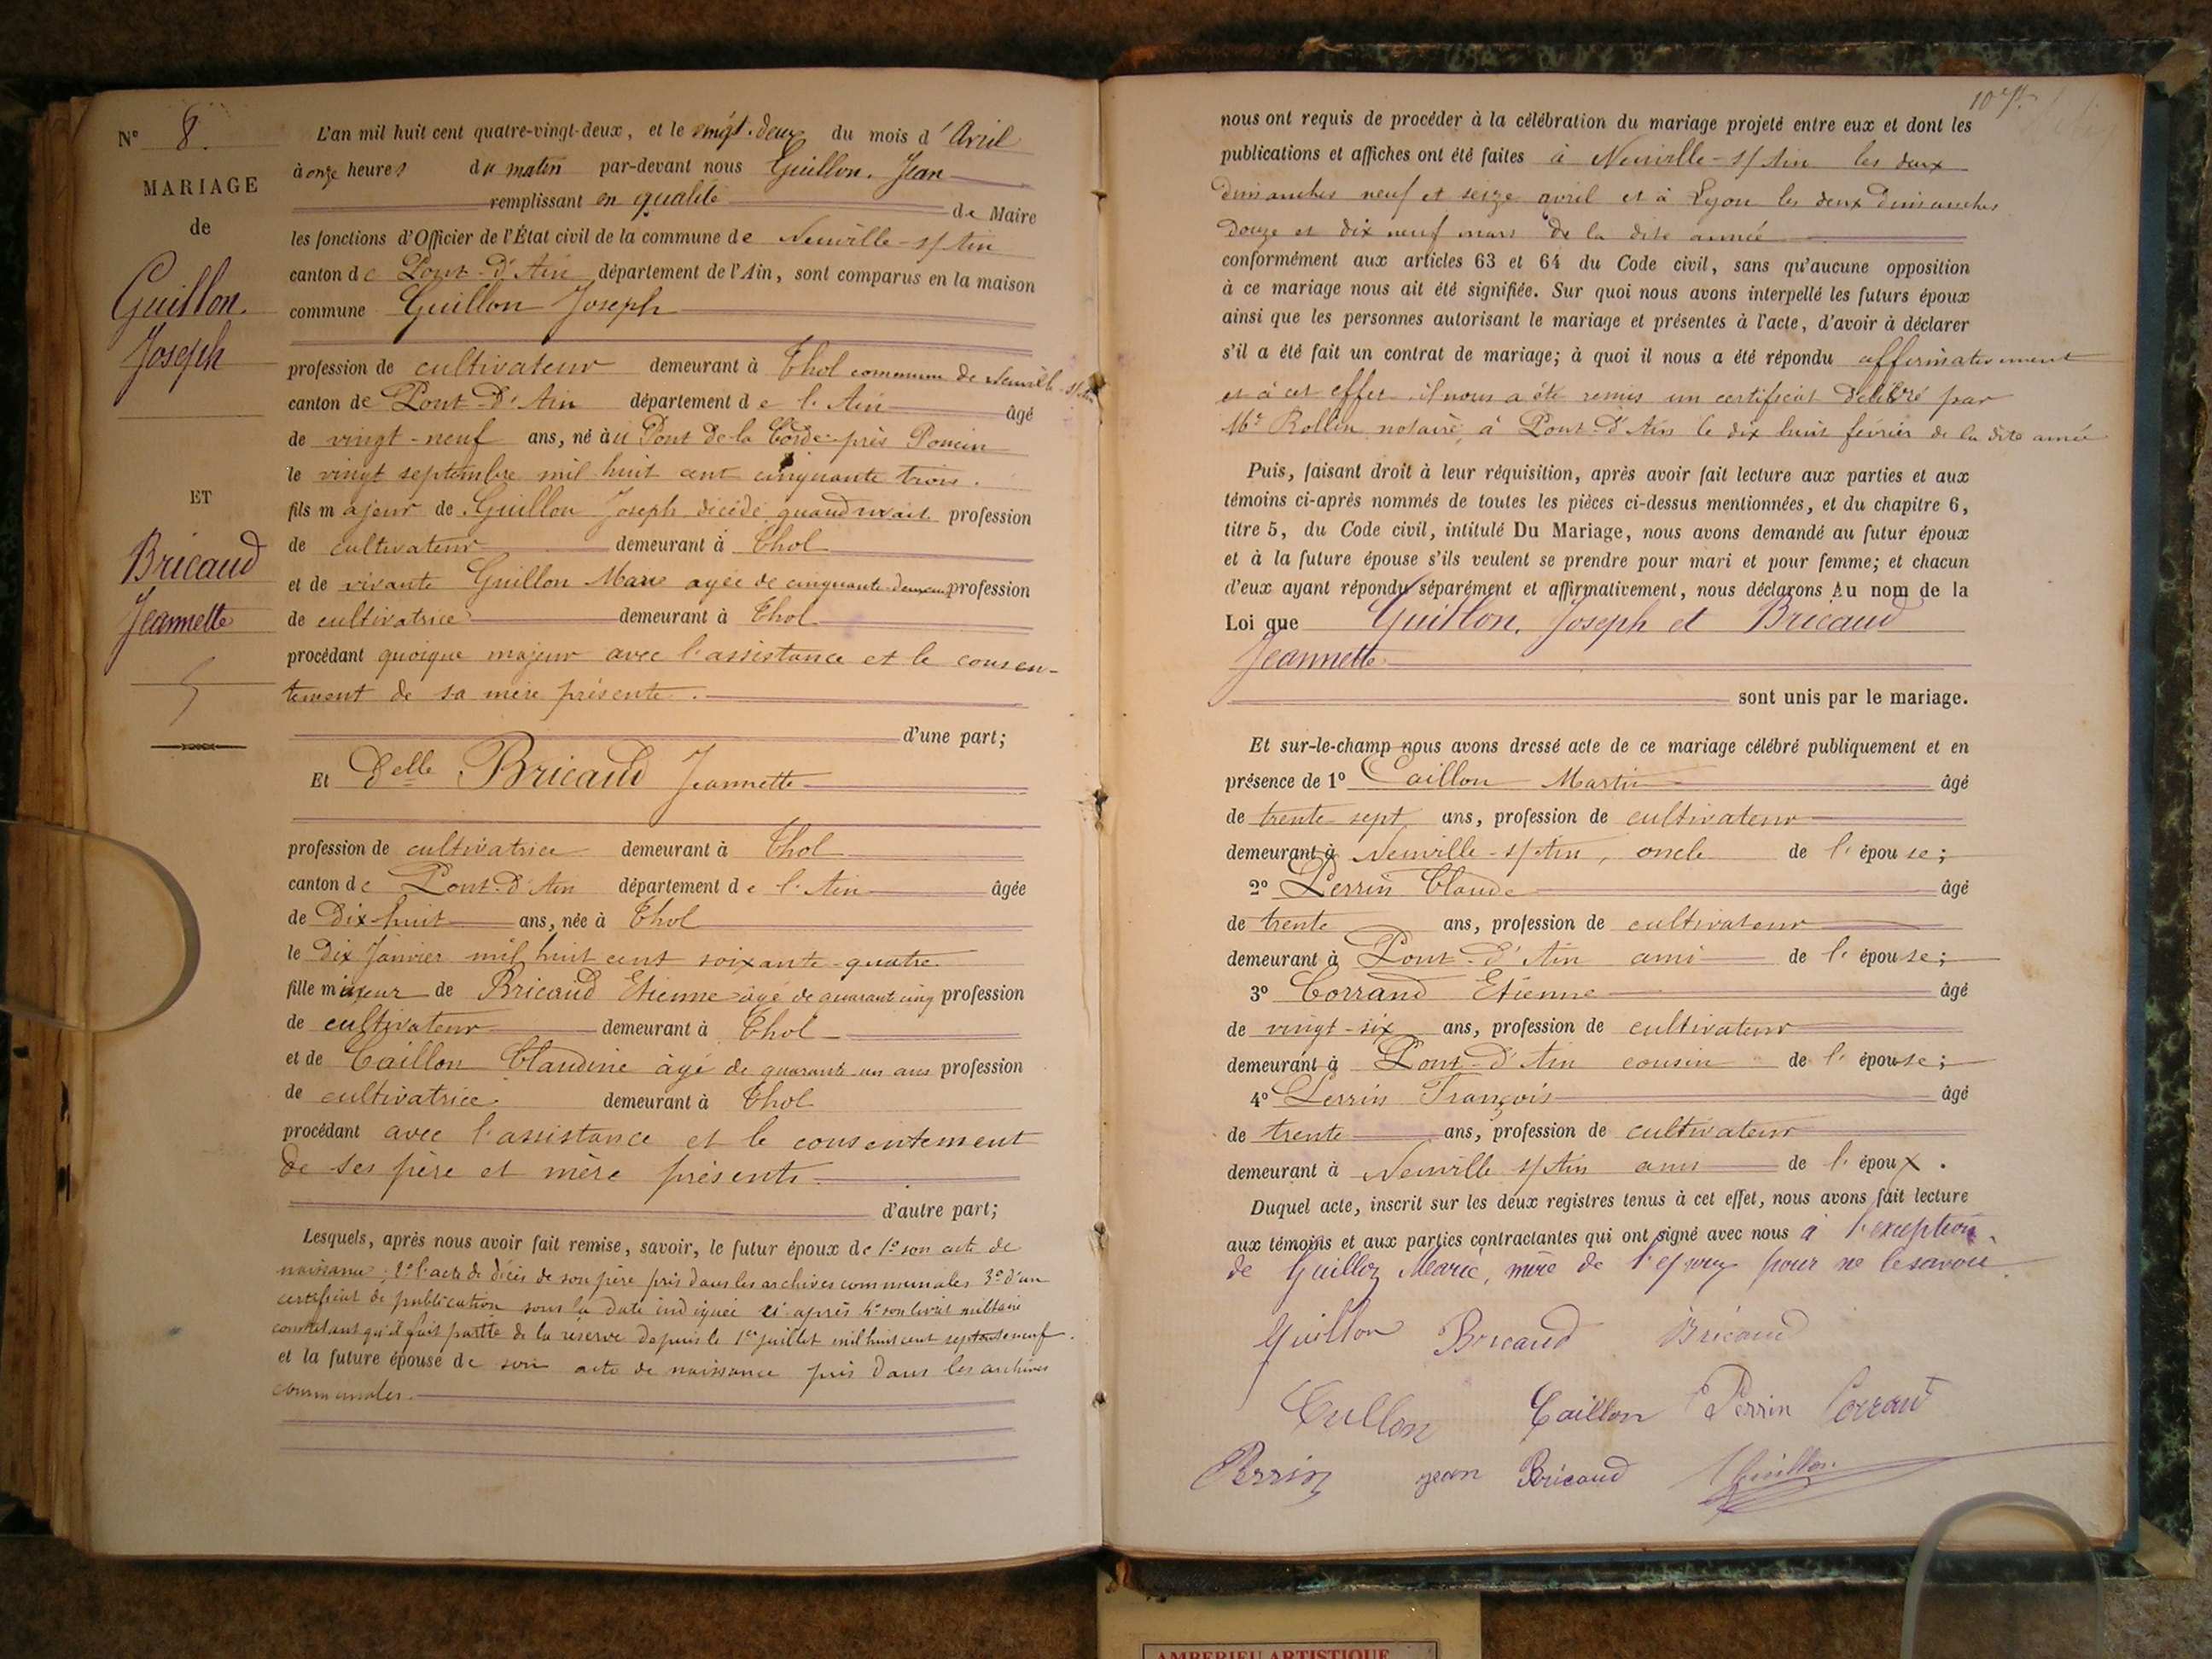 N° 8.
MARIAGE
de
Guillon.
Joseph
ET
Bricaud
Jeannette
L'an mil huit cent quatre-vingt-deux, et le vingt-deux du mois d'Avril
à onze heures du matin par-devant nous Guillon. Jean
remplissant en qualité de Maire
les fonctions d'Officier de l'État civil de la commune de Neuville-s/Ain
canton de Pont-d'Ain département de l'Ain, sont comparus en la maison
commune Guillon Joseph
profession de cultivateur demeurant à Thol commune de Neuville-s/Ain
canton de Pont-d'Ain département de l'Ain âgé
de vingt-neuf ans, né au Pont de la Corde près Poncin
le vingt septembre mil huit cent cinquante trois.
fils majeur de Guillon Joseph décédé quand vivait profession
de cultivateur demeurant à Thol
et de vivante Guillon Marie agée de cinquante-deux ans profession
de cultivatrice demeurant à Thol
procédant quoique majeur avec l'assistance et le consen-
tement de sa mère présente.
d'une part;
Et Delle Bricaud Jeannette
profession de cultivatrice demeurant à Thol
canton de Pont-d'Ain département de l'Ain âgée
de Dix-huit ans, née à Thol
le Dix Janvier mil huit cent soixante-quatre
fille mineur de Bricaud Etienne âgé de quarant cinq profession
de cultivateur demeurant à Thol
et de Caillon Claudine âgé de quarante un ans profession
de cultivatrice demeurant à Thol
procédant avec l'assistance et le consentement
de ses père et mère présents
d'autre part;
Lesquels, après nous avoir fait remise, savoir, le futur époux de 1° son acte de
naissance; 2° l'acte de décès de son père pris dans les archives communales 3° d'un
certificat de publication sous la date indiquée ci après 4° son livret militaire
constatant qu'il fait partie de la réserve depuis le 1er juillet mil huit cent
et la future épouse de son acte de naissance pris dans les archives
communales.
nous ont requis de procéder à la célébration du mariage projeté entre eux et dont les
publications et affiches ont été faites à Neuville-s/Ain les deux
dimanches neuf et seize avril et à Lyon les deux Dimanches
Douze et dix neuf mars de la dite année
conformément aux articles 63 et 64 du Code civil, sans qu'aucune opposition
à ce mariage nous ait été signifiée. Sur quoi nous avons interpellé les futurs époux
ainsi que les personnes autorisant le mariage et présentes à l'acte, d'avoir à déclarer
s'il a été fait un contrat de mariage; à quoi il nous a été répondu affirmativement
et à cet effet il nous a été remis un certificat délivré par
Me Rollin notaire à Pont-d'Ain le dix huit février de la dite année
Puis, faisant droit à leur réquisition, après avoir fait lecture aux parties et aux
témoins ci-après nommés de toutes les pièces ci-dessus mentionnées, et du chapitre 6,
titre 5, du Code civil, intitulé Du Mariage, nous avons demandé au futur époux
et à la future épouse s'ils veulent se prendre pour mari et pour femme; et chacun
d'eux ayant répondu séparément et affirmativement, nous déclarons Au nom de la
Loi que Guillon, Joseph et Bricaud
Jeannette
sont unis par le mariage.
Et sur-le-champ nous avons dressé acte de ce mariage célébré publiquement et en
présence de 1° Caillon Martin âgé
de trente-sept ans, profession de cultivateur
demeurant à Neuville-s/Ain, oncle de l'épouse;
2° Perrin Claude âgé
de trente ans, profession de cultivateur
demeurant à Pont-d'Ain ami de l'épouse;
3° Corrand Etienne âgé
de vingt-six ans, profession de cultivateur
demeurant à Pont-d'Ain cousin de l'épouse;
4° Perrin François âgé
de trente ans, profession de cultivateur
demeurant à Neuville s/Ain ami de l'époux.
Duquel acte, inscrit sur les deux registres tenus à cet effet, nous avons fait lecture
aux témoins et aux parties contractantes qui ont signé avec nous à l'exception
de Guillon Marie, mère de l'époux pour ne le savoir.
Guillon Bricaud Bricaud
Caillon Perrin Corrand
Perrin jean Bricaud Guillon
AMBERIEU ARTISTIQUE